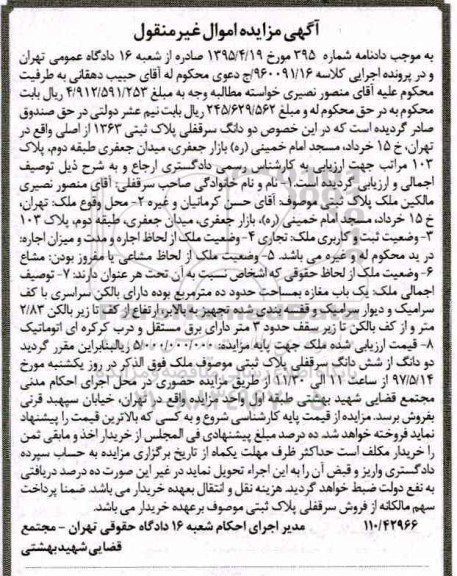 آگهی مزایده اموال غیر منقول
به موجب دادنامه شماره ۳۹۵ مورخ ۱۳۹۵/۴/۱۹ صادره از شعبه ۱۶ دادگاه عمومی تهران
و در پرونده اجرایی کلاسه ۹۶۰۰۹۱/۱۶/ج دعوی محکوم له آقای حبیب دهقانی به طرفیت
محکوم علیه آقای منصور نصیری خواسته مطالبه وجه به مبلغ ۴/۹۱۲/۵۹۱/۲۵۳ ریال بابت
محکوم به در حق محکوم له و مبلغ ۲۴۵/۶۲۹/۵۶۲ ریال بابت نیم عشر دولتی در حق صندوق
صادر گردیده است که در این خصوص دو دانگ سرقفلی پلاک ثبتی ۱۳۶۳ از اصلی واقع در
تهران، خ ۱۵ خرداد، مسجد امام خمینی (ره) بازار جعفری، میدان جعفری طبقه دوم، پلاک
۱۰۳ مراتب جهت ارزیابی به کارشناس رسمی دادگستری ارجاع و به شرح ذیل توصیف
اجمالی و ارزیابی گردیده است. ۱- نام و نام خانوادگی صاحب سرقفلی: آقای منصور نصیری
مالکین ملک پلاک ثبتی موصوف: آقای حسن کرمانیان و غیره ۲- محل وقوع ملک: تهران،
خ ۱۵ خرداد، مسجد امام خمینی (ره)، بازار جعفری، میدان جعفری، طبقه دوم، پلاک ۱۰۳
۳- وضعیت ثبت و کاربری ملک: تجاری ۴- وضعیت ملک از لحاظ اجاره و مدت و میزان اجاره:
در ید محکوم له و غیره می باشد. ۵- وضعیت ملک از لحاظ مشاعی یا مفروز بودن: مشاع
۶- وضعیت ملک از لحاظ حقوقی که اشخاص نسبت به آن تحت هر عنوان دارند: ۷- توصیف
اجمالی ملک: یک باب مغازه بمساحت حدود ده مترمربع بوده دارای بالکن سراسری با کف
سرامیک و دیوار سرامیک و قفسه بندی شده تجهیز به بالابر ارتفاع از کف تا زیر بالکن ۲/۸۳
متر و از کف بالکن تا زیر سقف حدود ۳ متر دارای برق مستقل و درب کرکره ای اتوماتیک
۸- قیمت ارزیابی شده ملک جهت پایه مزایده: ۵/۰۰۰/۰۰۰/۰۰۰ ریالبنابراین مقرر گردید
دو دانگ از شش دانگ سرقفلی پلاک ثبتی موصوف ملک فوق الذکر در روز یکشنبه مورخ
۹۷/۵/۱۴ از ساعت ۱۱ الی ۱۱/۳۰ از طریق مزایده حضوری در محل اجرای احکام مدنی
مجتمع قضایی شهید بهشتی طبقه اول واحد مزایده واقع در تهران، خیابان سپهبد قرنی
بفروش برسد. مزایده از قیمت پایه کارشناسی شروع و به کسی که بالاترین قیمت را پیشنهاد
نماید فروخته خواهد شد. ده درصد مبلغ پیشنهادی فی المجلس از خریدار اخذ و مابقی ثمن
را خریدار مکلف است حداکثر ظرف مهلت یکماه از تاریخ برگزاری مزایده به حساب سپرده
دادگستری واریز و قبض آن را به این اجراء تحویل نماید در غیر این صورت ده درصد دریافتی
به نفع دولت ضبط خواهد گردید. هزینه نقل و انتقال بعهده خریدار می باشد. ضمنا پرداخت
سهم مالکانه از فروش سرقفلی پلاک ثبتی موصوف برعهده خریدار می باشد.
۱۱۰/۴۲۹۶۶ مدیر اجرای احکام شعبه ۱۶ دادگاه حقوقی تهران - مجتمع
قضایی شهید بهشتی